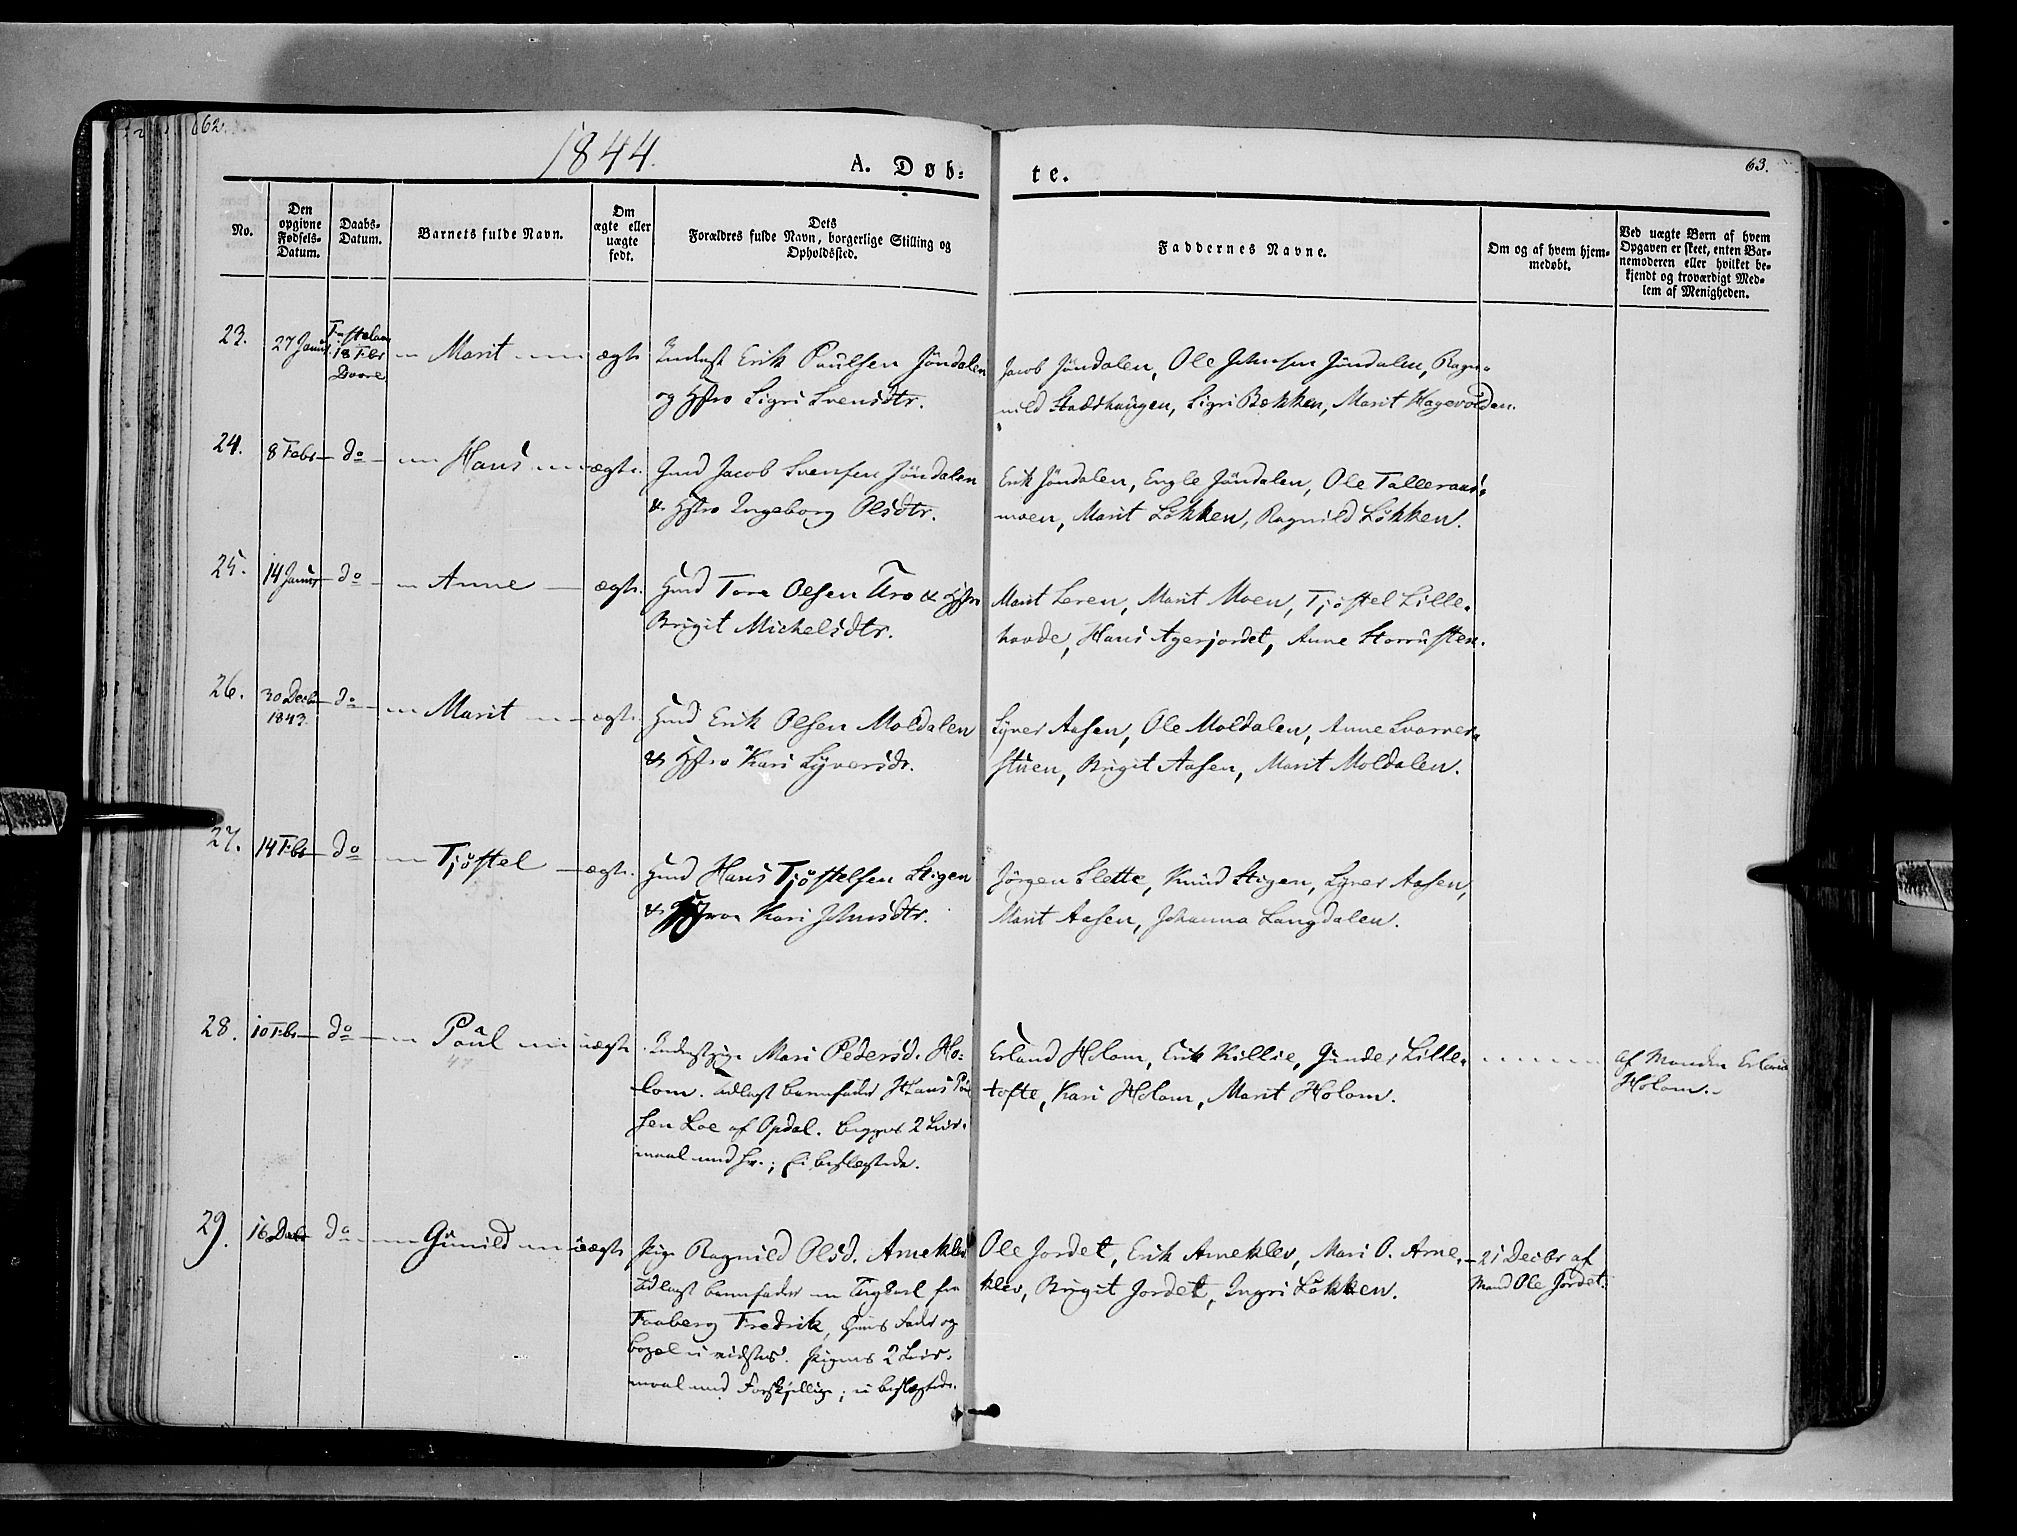 62.
1844.
A. Døb-
te.
63.
No.
Den opgivne Fødsels-Datum.
Daabs-Datum.
Barnets fulde Navn.
Om ægte eller uægte født.
Dets Forældres fulde Navn, borgerlige Stilling og Opholdssted.
Faddernes Navne.
Om og af hvem hjem-medøbt.
Ved uægte Børn af hvem Opgaven er skeet, enten Bar-nemoderen eller hvilket be-kjendt og troværdigt Med-lem af Menigheden.
23. 27 Januar Fastelavn 18 Febr Dovre Marit ægte
Inderst Erik Paulsen Jøndalen
og Hstro Sigri Svensdtr.
Jacob Jøndalen, Ole Johnsen Jøndalen, Rag-
nild Stadshaugen, Sigri Bækken, Marit Hagevolden.
24. 8 Febr do Hans ægte.
Gmd Jacob Svensen Jøndalen
& Hstro Ingeborg Olsdtr.
Erik Jøndalen, Engle Jøndalen, Ole Talleraas-
moen, Marit Løkken, Ragnild Løkken.
25. 14 Januar do Anne ægte.
Hmd Tore Olsen Uro & Hstro
Brigit Michelsdtr.
Marit Leren, Marit Moen, Tjøstel Lille-
haave, Hans Agerjordet, Anne Storrusten.
26. 30 Decbr 1843. do Marit ægte.
Hmd Erik Olsen Moldalen
& Hstro Kari Syversdr.
Syver Aasen, Ole Moldalen, Anne Svarver-
stuen, Brigit Aasen, Marit Moldalen.
27. 14 Febr do Tjøstel ægte.
Hmd Hans Tjøstelsen Stigen
& Kari Johnsdtr.
Jörgen Slette, Knud Stigen, Syver Aasen,
Marit Aasen, Johanna Langdalen.
28. 10 Febr do Paul uægte
47
Inderstpige Mari Pedersd. Ho-
lom. Udlagt barnefader Hans Paul
sen Loe af Opdal. Begges 2 Leier-
maal med hv.; Ei beslægtede.
Erland Holom, Erik Killie, Gunder Lille-
tofte, Kari Holom, Marit Holom.
af Manden Erland
Holom.
29. 16 Decbr do Gunild uægte
Pige Ragnild Olsd. Arneklev
Udlagt barnefader en Ungkarl fra
Faaberg Fredrik, hvis Fader og
bopæl ei vidstes. Pigens 2 Leier-
maal med Forskjellige; ei beslægtede.
Ole Jordet, Erik Arneklev, Mari O. Arne-
klev, Brigit Jordet, Ingri Løkken.
21 Decbr af
Mand Ole Jordet.